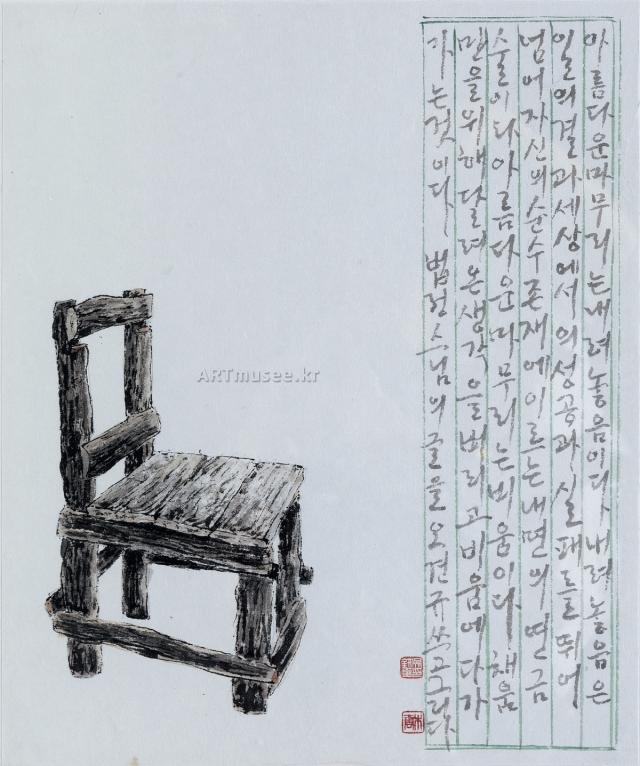 아름다운마무리는내려놓음이다내려놓음은
일의결과세상에서의성공과실패를뛰어
넘어자신의순수존재에이르는내면의연금
술이다아름다운마무리는비움이다채움
만을위해달려온생각을버리고비움에다가
가는것이다 법정스님의글을오견규쓰고그리다
ARTmusee.kr